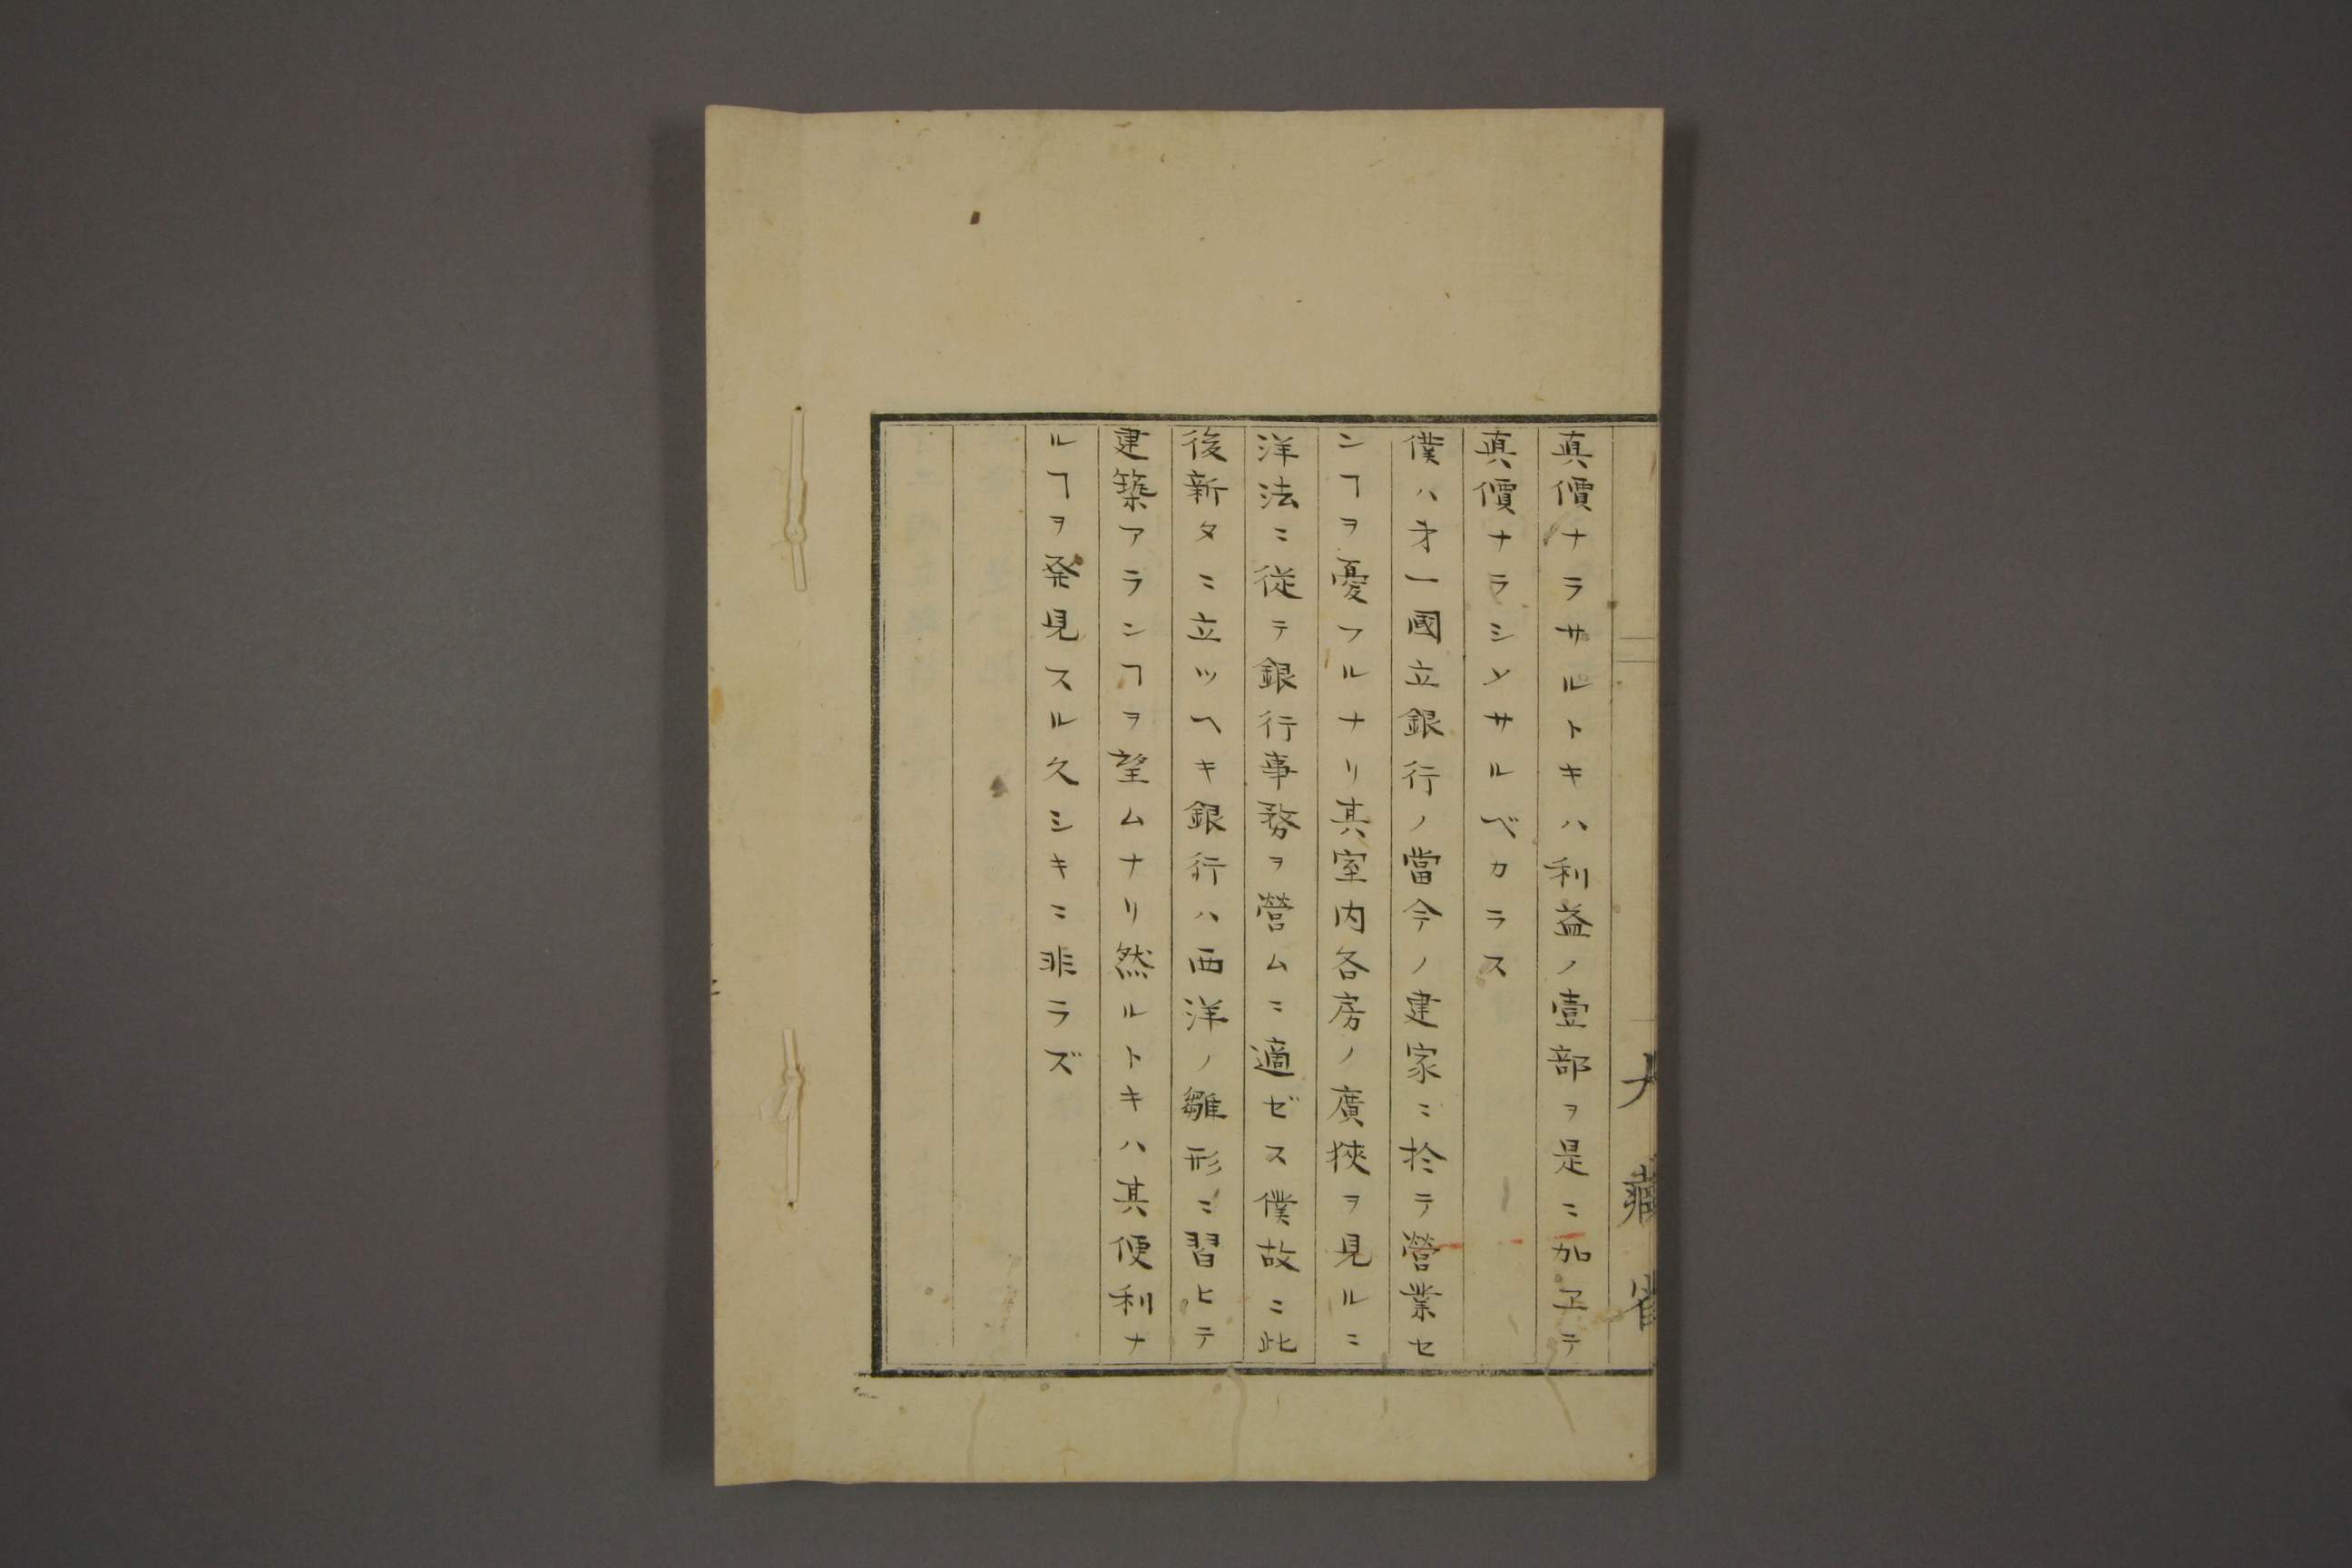 大藏省
真價ナラサルトキハ利益ノ壹部ヲ是ニ加ヱテ
真價ナラシメサルベカラス
僕ハ才一國立銀行ノ當今ノ建家ニ於テ營業セ
ンヿヲ憂フルナリ其室内各房ノ廣狹ヲ見ルニ
洋法ニ従テ銀行事務ヲ營ムニ適ゼス僕故ニ此
後新タニ立ツヘキ銀行ハ西洋ノ雛形ニ習ヒテ
建築アランヿヲ望ムナリ然ルトキハ其便利ナ
ルヿヲ発見スル久シキニ非ラズ